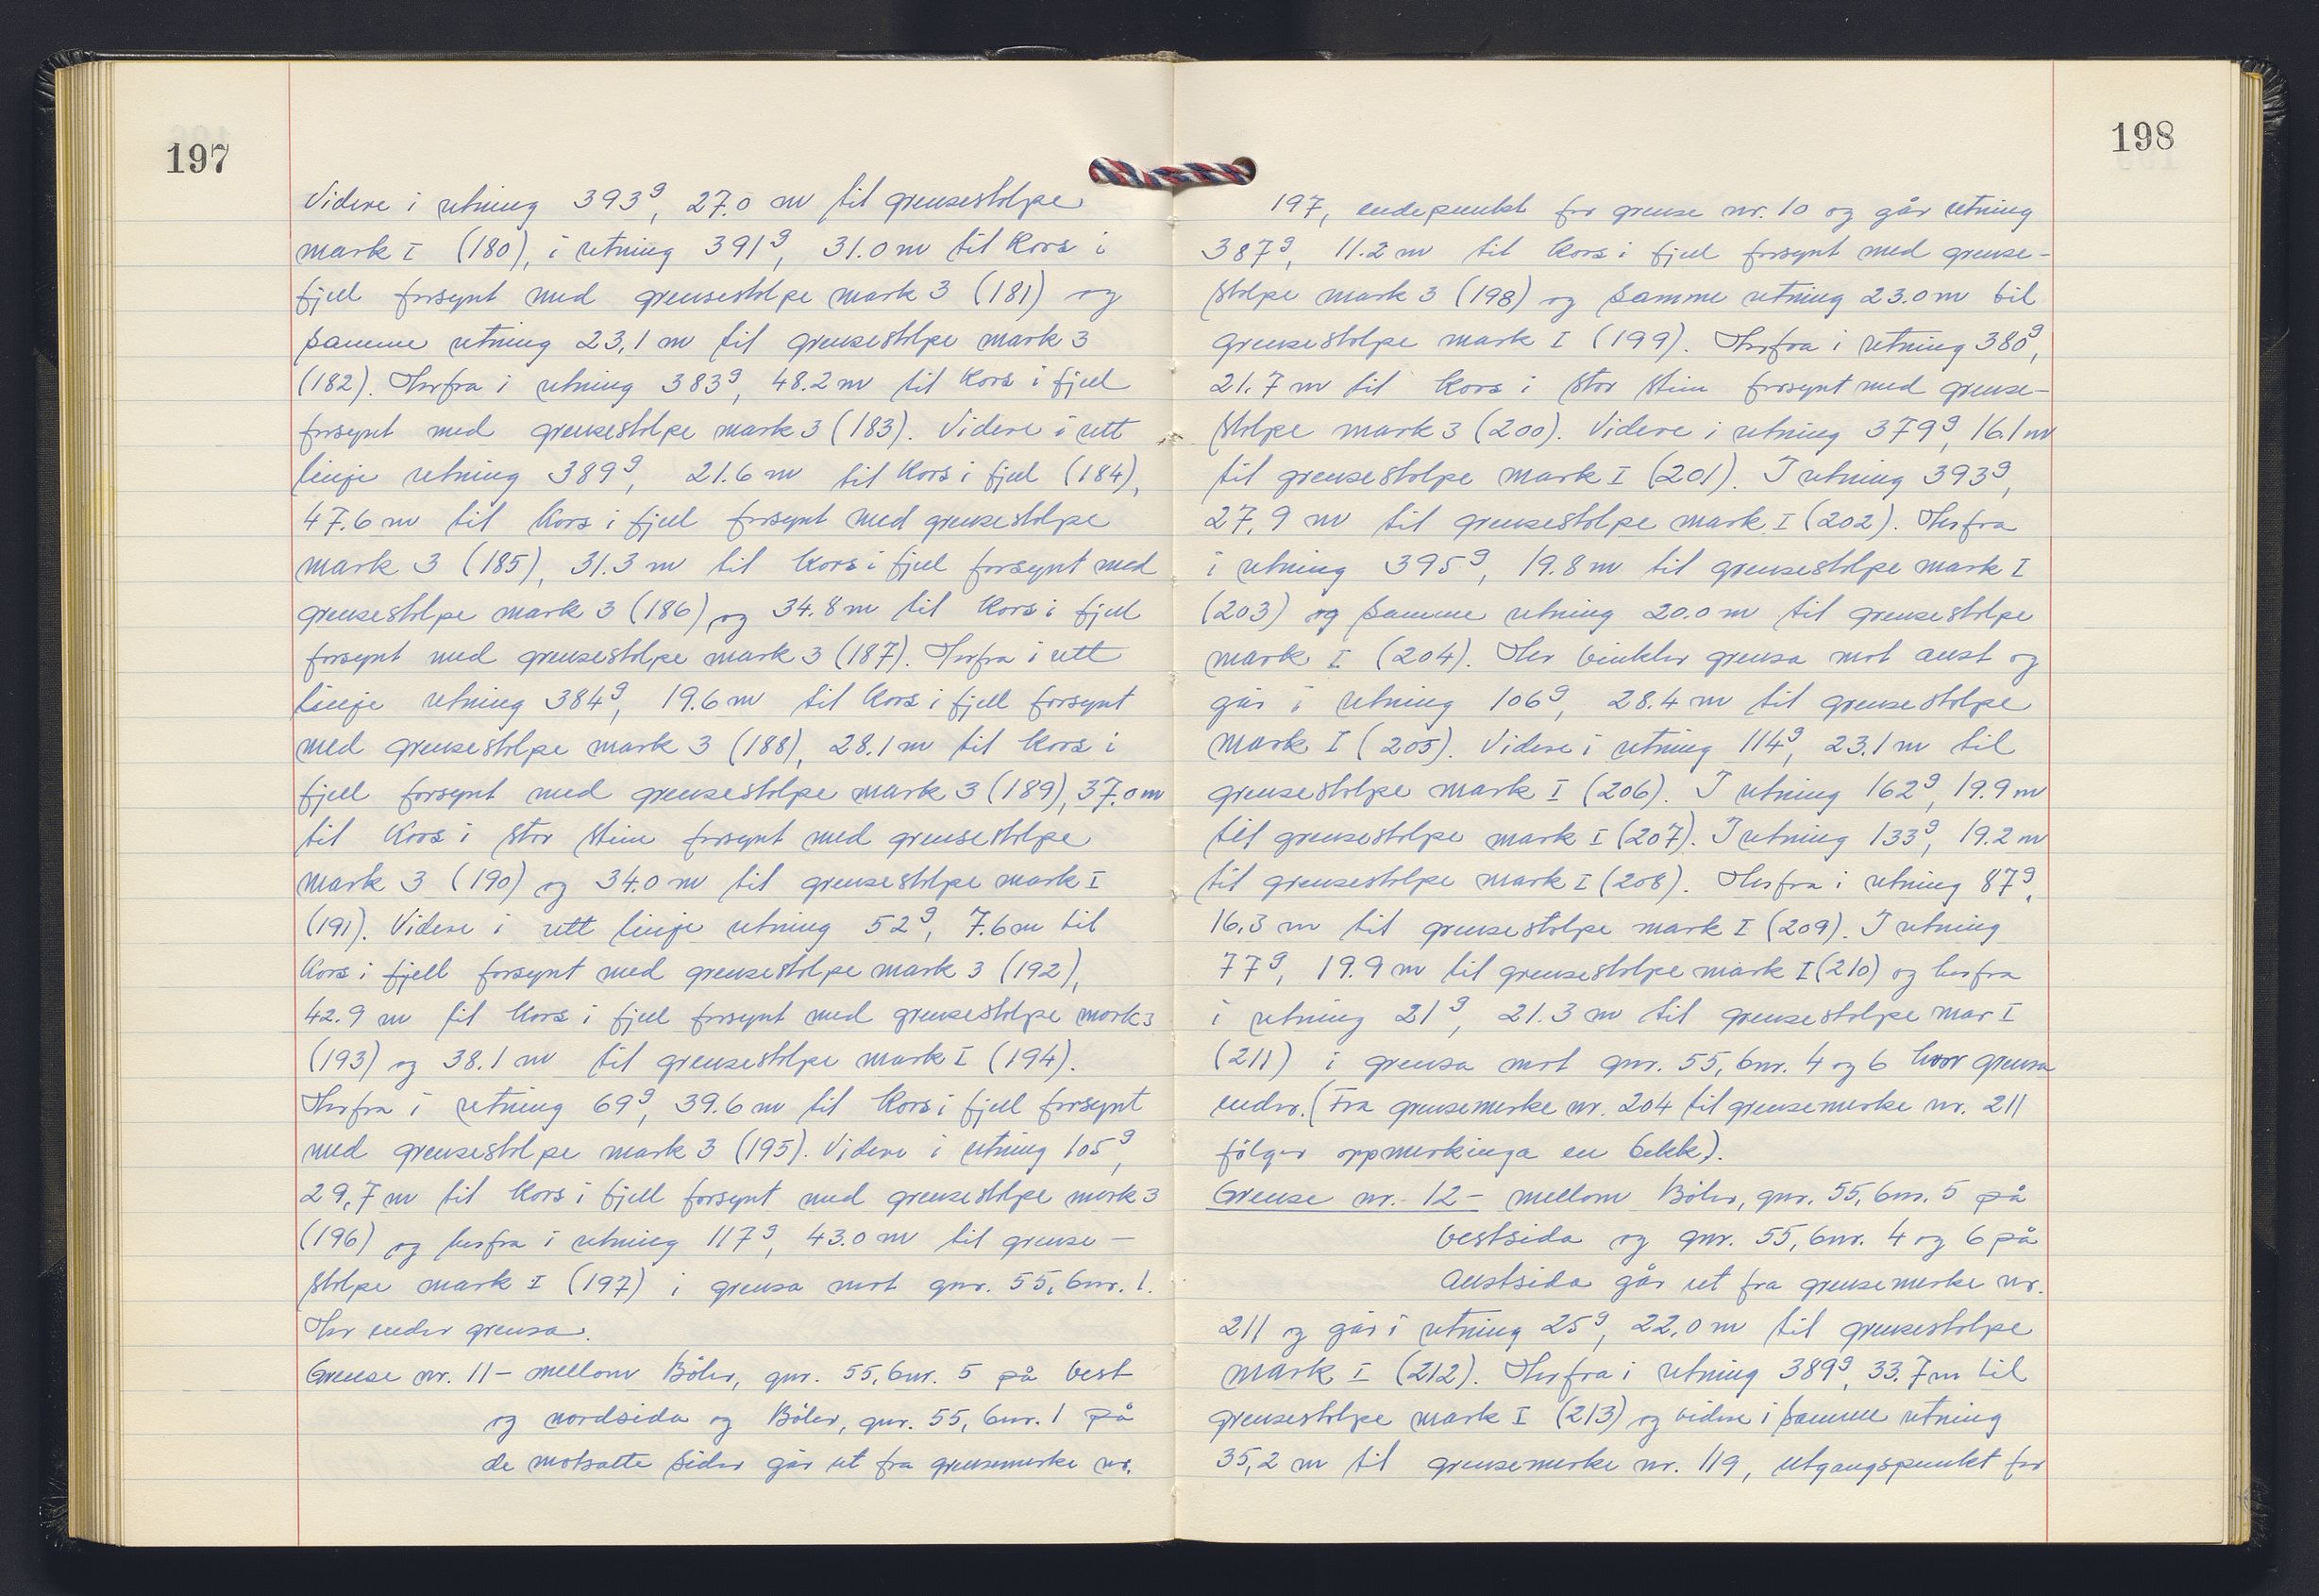 197
Videre i retning 393g, 27.0 m til grensestolpe
mark I (180), i retning 391g, 31.0 m til kors i
fjell forsynt med grensestolpe mark 3 (181) og
samme retning 23,1 m til grensestolpe mark 3
(182). Herfra i retning 383g, 48.2 m til kors i fjell
forsynt med grensestolpe mark 3 (183). Videre i rett
linje retning 389g, 21.6 m til kors i fjell (184),
47.6 m til kors i fjell forsynt med grensestolpe
mark 3 (185), 31.3 m til kors i fjell forsynt med
grensestolpe mark 3 (186) og 34.8 m til kors i fjell
forsynt med grensestolpe mark 3 (187). Herfra i rett
linje retning 384g, 19.6 m til kors i fjell forsynt
med grensestolpe mark 3 (188), 28.1 m til kors i
fjell forsynt med grensestolpe mark 3 (189), 37.0 m
til kors i stor stein forsynt med grensestolpe
mark 3 (190) og 34.0 m til grensestolpe mark I
(191). Videre i rett linje retning 52g, 7.6 m til
kors i fjell forsynt med grensestolpe mark 3 (192),
42.9 m til kors i fjell forsynt med grensestolpe mark 3
(193) og 38.1 m til grensestolpe mark I (194).
Herfra i retning 69g, 39.6 m til kors i fjell forsynt
med grensestolpe mark 3 (195). Videre i retning 105g,
29,7 m til kors i fjell forsynt med grensestolpe mark 3
(196) og herfra i retning 117g, 43.0 m til grense-
stolpe mark I (197) i grensa mot gnr. 55, bnr. 1.
Her ender grensa.
Grense nr. 11 - mellom Böler, gnr. 55, bnr. 5 på vest
og nordsida og Böler, gnr. 55, bnr. 1 på
de motsatte sider går ut fra grensemerke nr.
198
197, endepunkt for grense nr. 10 og går retning
387g, 11.2 m til kors i fjell forsynt med grense-
stolpe mark 3 (198) og samme retning 23.0 m til
grensestolpe mark I (199). Herfra i retning 380g,
21.7 m til kors i stor stein forsynt med grense-
stolpe mark 3 (200). Videre i retning 379g, 16.1 m
til grensestolpe mark I (201). I retning 393g,
27.9 m til grensestolpe mark I (202). Herfra
i retning 395g, 19.8 m til grensestolpe mark I
(203) og samme retning 20.0 m til grensestolpe
mark I (204). Her vinkler grensa mot aust og
går i retning 106g, 28.4 m til grensestolpe
mark I (205). Videre i retning 114g, 23.1 m til
grensestolpe mark I (206). I retning 162g, 19.9 m
til grensestolpe mark I (207). I retning 133g, 19.2 m
til grensestolpe mark I (208). Herfra i retning 87g,
16.3 m til grensestolpe mark I (209). I retning
77g, 19.9 m til grensestolpe mark I (210) og herfra
i retning 21g, 21.3 m til grensestolpe mar I
(211) i grensa mot gnr. 55, bnr. 4 og 6 hvor grensa
ender. (Fra grensemerke nr. 204 til grensemerke nr. 211
følger oppmerkinga en bekk).
Grense nr. 12 - mellom Böler, gnr. 55, bnr. 5 på
vestsida og gnr. 55, bnr. 4 og 6 på
austsida går ut fra grensemerke nr.
211 og går i retning 25g, 22,0 m til grensestolpe
mark I (212). Herfra i retning 389g, 33.7 m til
grensestolpe mark I (213) og videre i samme retning
35,2 m til grensemerke nr. 119, utgangspunkt for